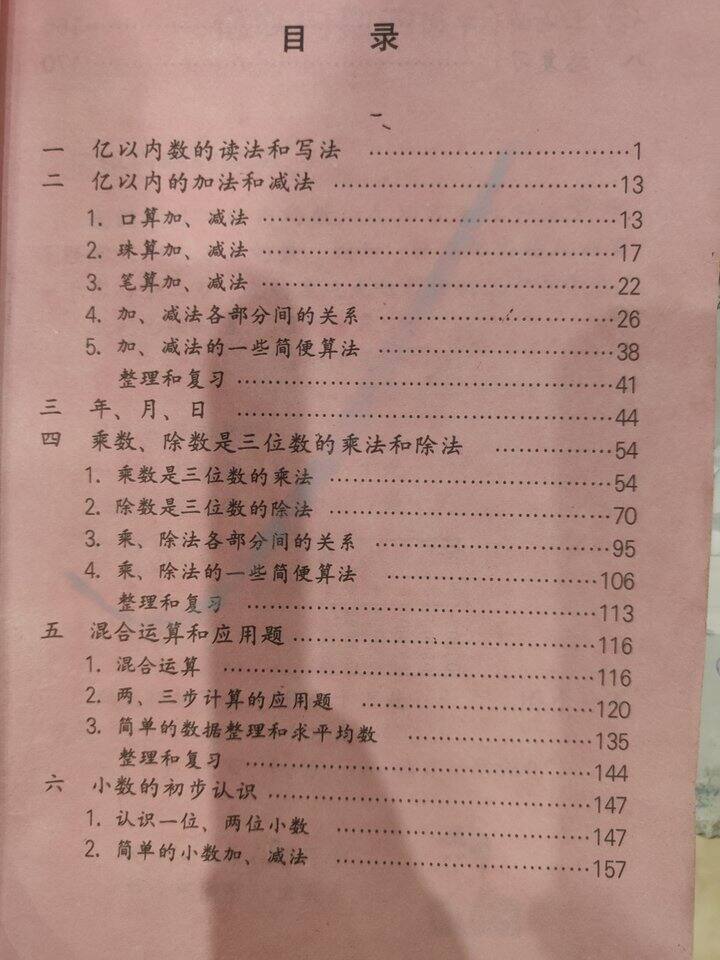 目 录
一 亿以内数的读法和写法 ……………………………1
二 亿以内的加法和减法 ……………………………13
1. 口算加、减法 ……………………………13
2. 珠算加、减法 ……………………………17
3. 笔算加、减法 ……………………………22
4. 加、减法各部分间的关系 ……………………………26
5. 加、减法的一些简便算法 ……………………………38
整理和复习 ……………………………41
三 年、月、日 ……………………………44
四 乘数、除数是三位数的乘法和除法 ……………………………54
1. 乘数是三位数的乘法 ……………………………54
2. 除数是三位数的除法 ……………………………70
3. 乘、除法各部分间的关系 ……………………………95
4. 乘、除法的一些简便算法 ……………………………106
整理和复习 ……………………………113
五 混合运算和应用题 ……………………………116
1. 混合运算 ……………………………116
2. 两、三步计算的应用题 ……………………………120
3. 简单的数据整理和求平均数 ……………………………135
整理和复习 ……………………………144
六 小数的初步认识 ……………………………147
1. 认识一位、两位小数 ……………………………147
2. 简单的小数加、减法 ……………………………157